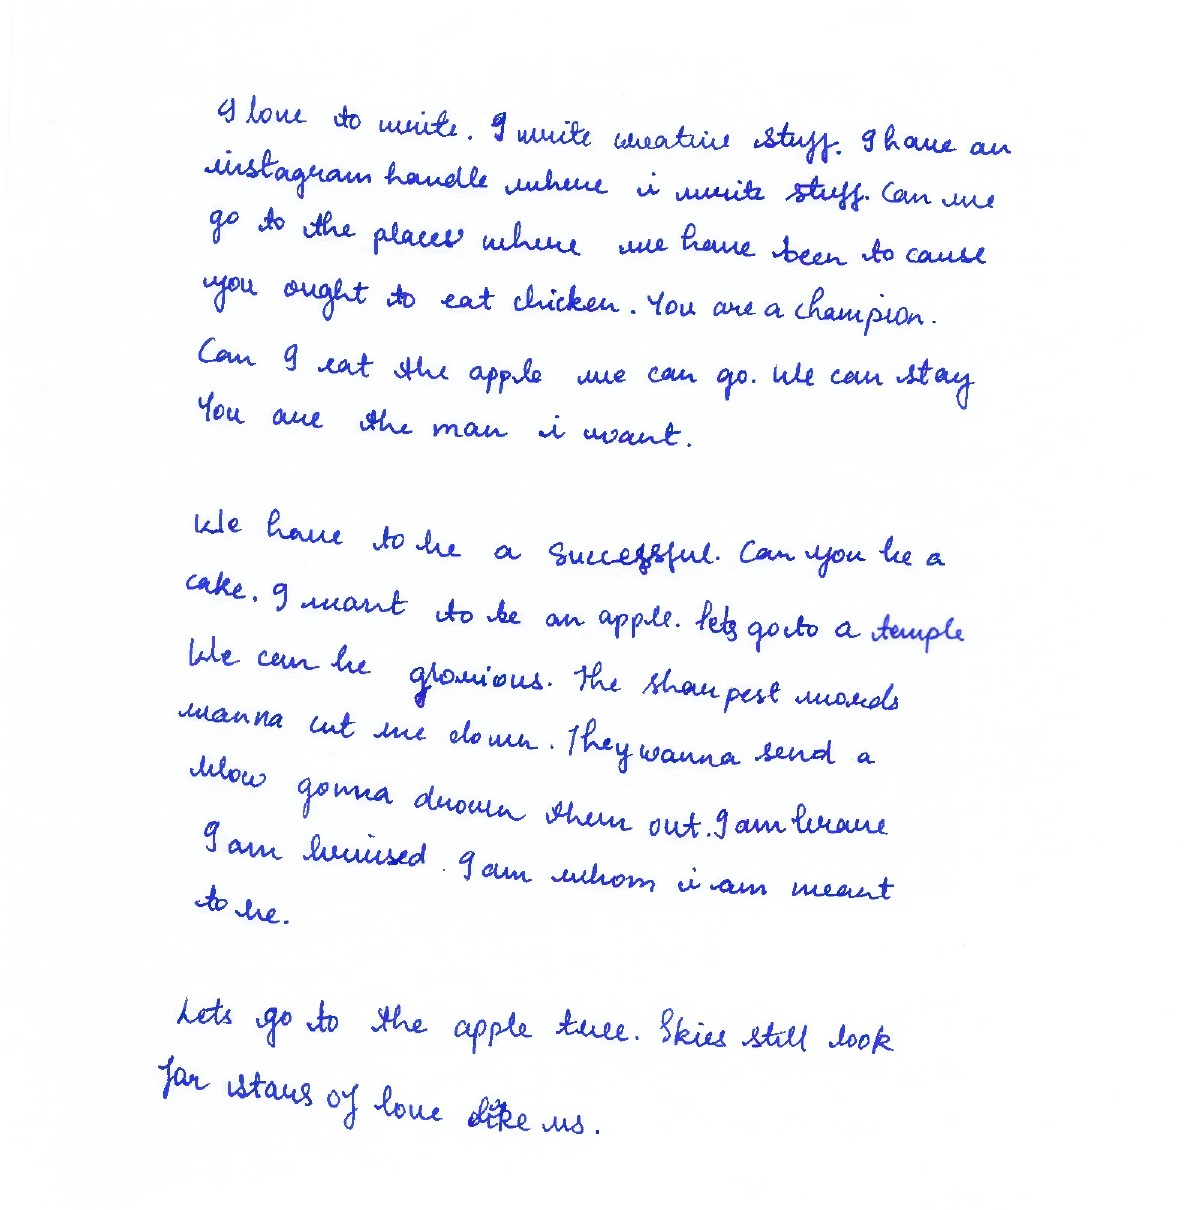 I love to write. I write creative stuff. I have an
instagram handle where i write stuff. Can we
go to the places where we have been to cause
you ought to eat chicken. You are a champion.
Can I eat the apple we can go. We can stay
You are the man i want.
We have to be a successful. Can you be a
cake. I want to be an apple. lets go to a temple
We can be glorious. The sharpest words
wanna cut me down. They wanna send a
blow gonna drown them out. I am brave
I am bruised. I am whom i am meant
to be.
Lets go to the apple tree. Skies still look
for stars of love like us.